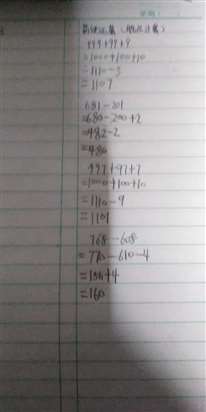 简便运算(脱式计算)
999+99+9
=1000+100+10
=1110-3
=1107
681-201
=680-200+2
=482-2
=480
997+97+7
=1000+100+10
=1110-9
=1101
768-608
=770-610-4
=156+4
=160